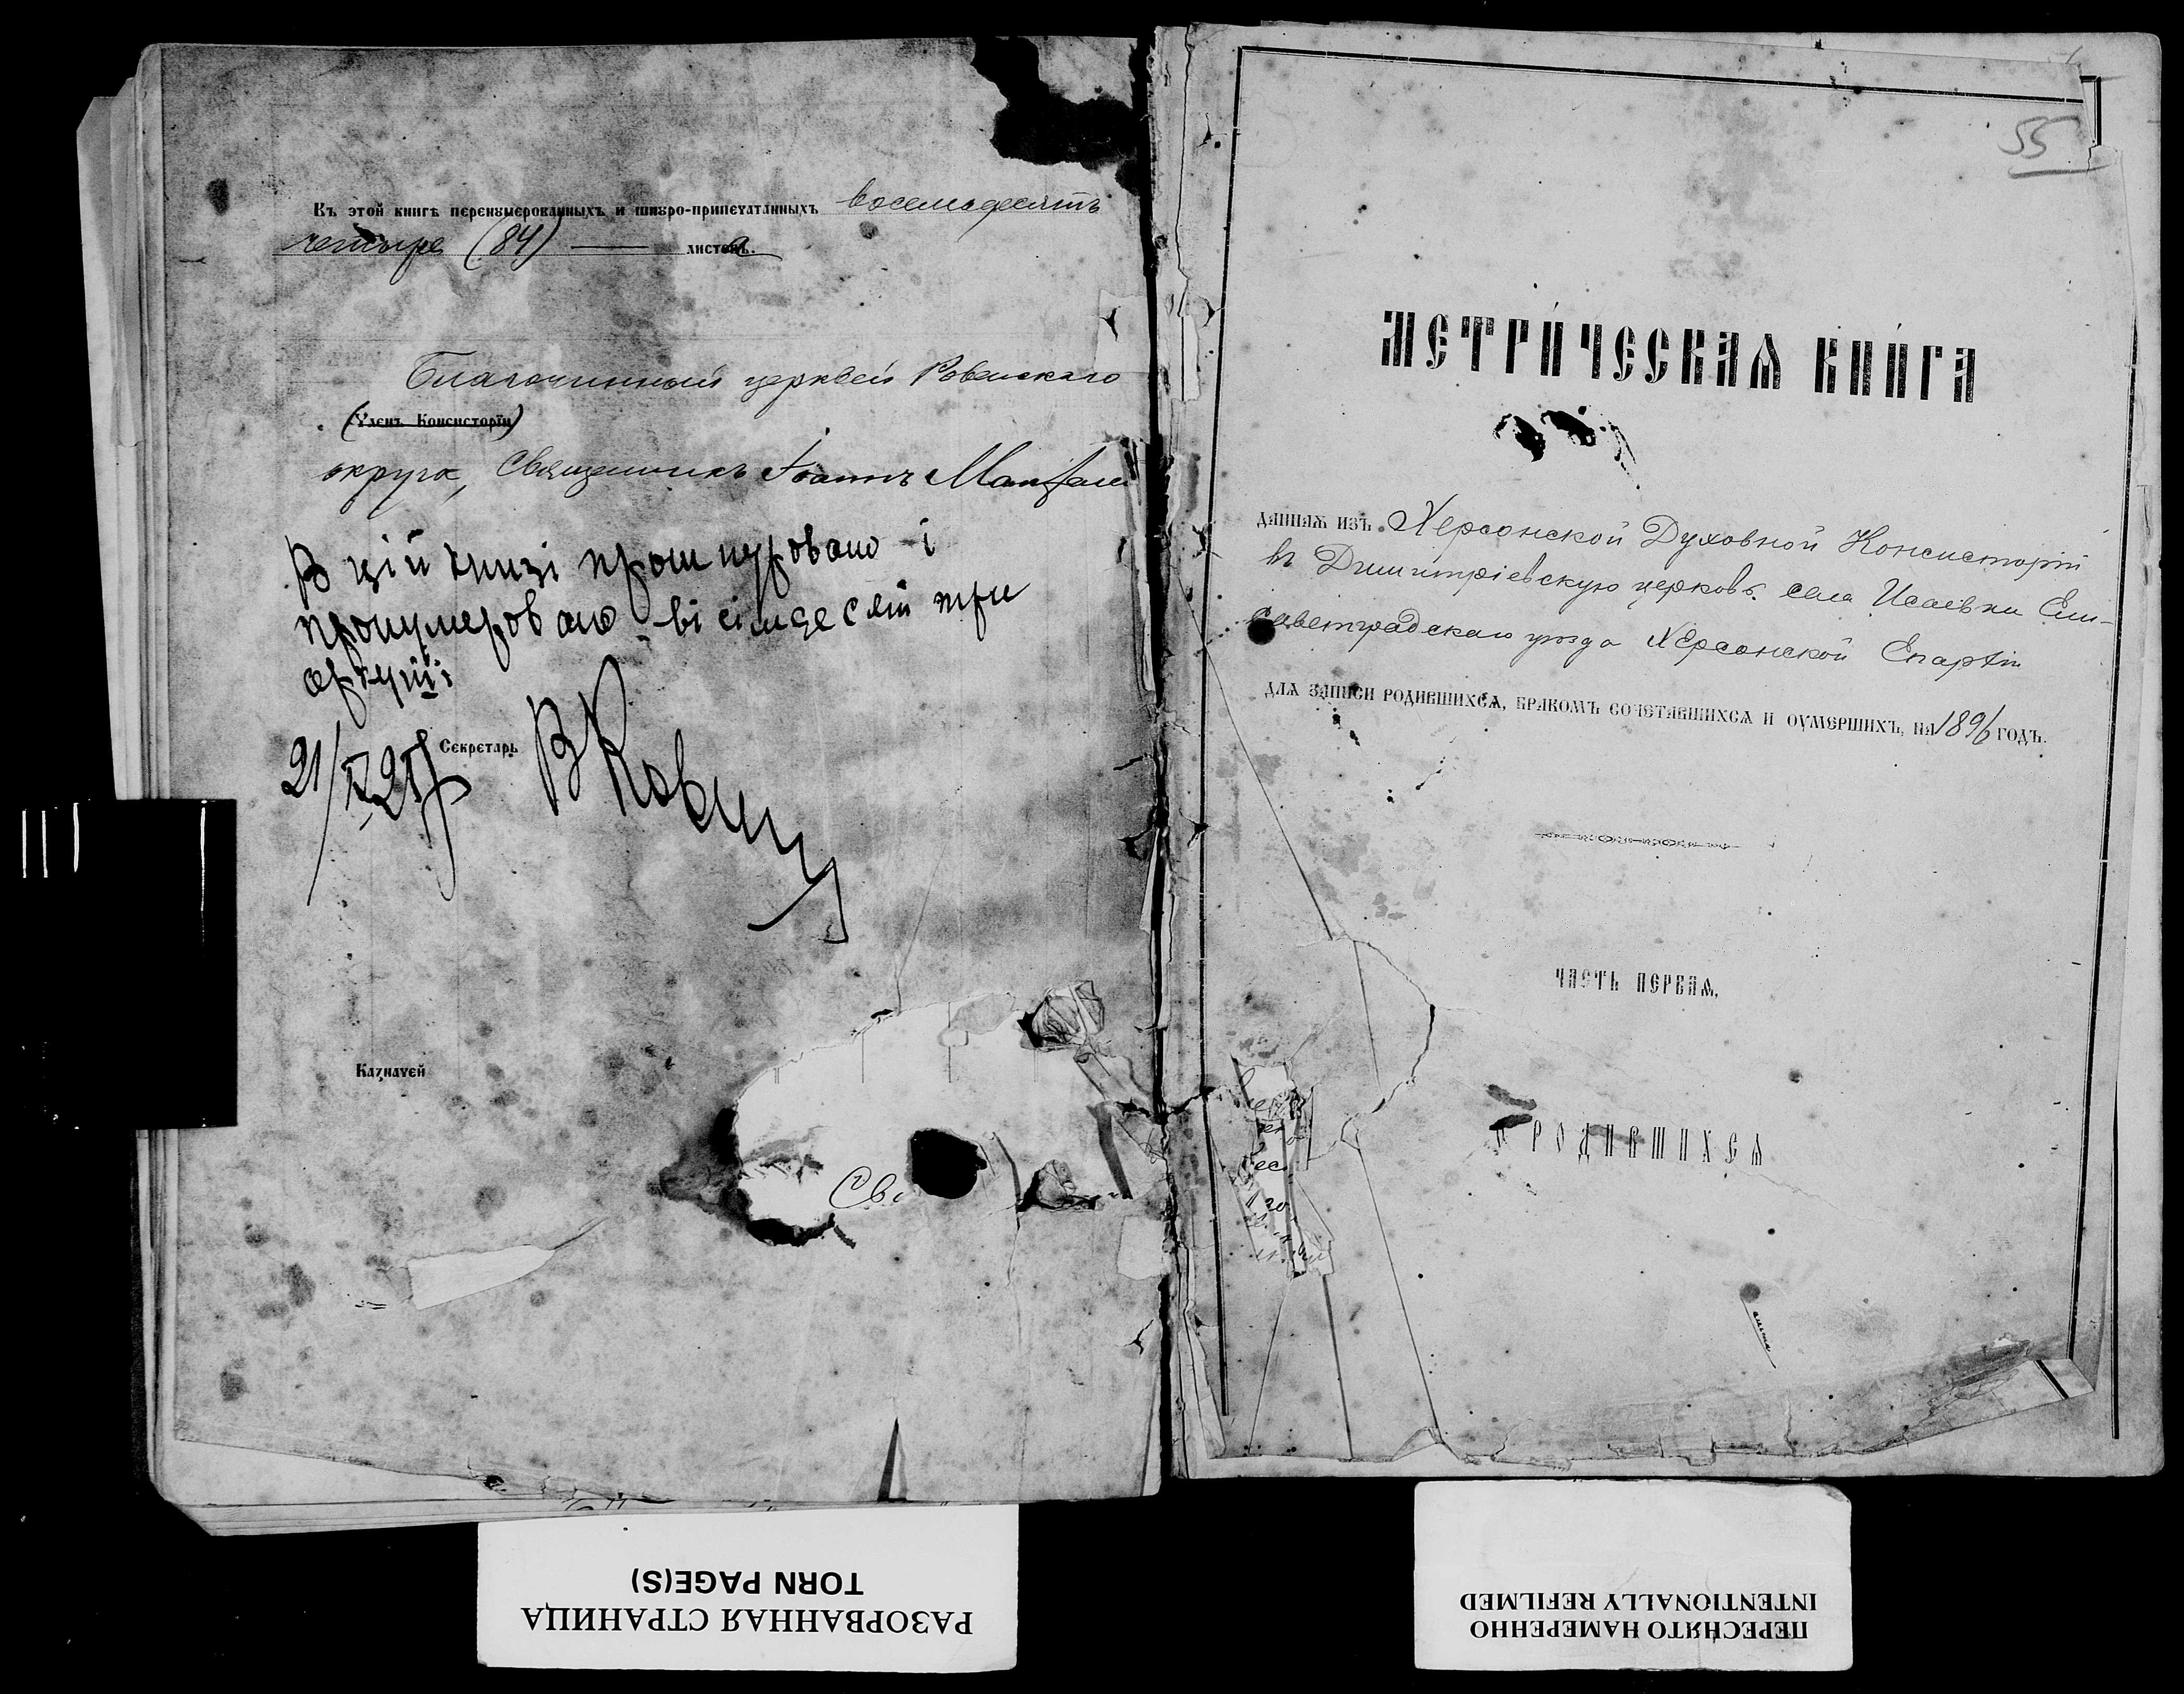 Въ этой книгѣ перенумерованныхъ и шнуро-припечатанныхъ восемьдесятъ
четыре (84) — листа.
Благочинный церквей Ровенскаго
(Членъ Консисторіи)
округа, Священникъ Іоаннъ
В цій книзі прошнуровано і
пронумеровано вісімдесят три
аркуші
Секретарь
Казначей
Св
55
МЕТРИ́ЧЕСКАѦ КНИ́ГА
даннаѧ изъ Херсонской Духовной Консисторіи
въ Димитріевскую церковь села Исаевки Ели-
саветградскаго уѣзда Херсонской Епархіи
для записи родившихсѧ, бракомъ сочетавшихсѧ и оумершихъ, на 1896 годъ.
ЧАСТЬ ПЕРВАѦ,
О РОДИВШИХСѦ
РАЗОРВАННАЯ СТРАНИЦА
TORN PAGE(S)
ПЕРЕСНЯТО НАМЕРЕННО
INTENTIONALLY REFILMED